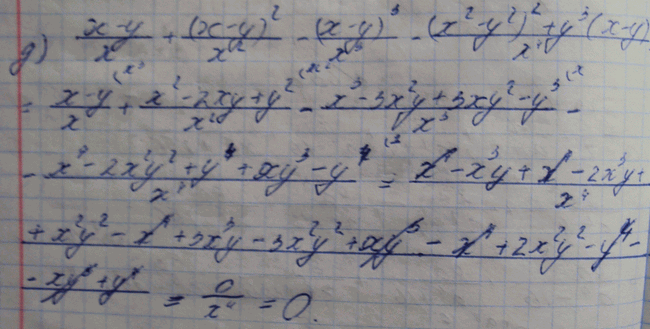 д) (x-y)/x + (x-y)²/x² - (x-y)³/x³ - ((x²-y²)²+y³(x-y))/x⁴
= (x-y)/x + (x²-2xy+y²)/x² - (x³-3x²y+3xy²-y³)/x³ -
- (x⁴-2x²y²+y⁴+xy³-y⁴)/x⁴ = (x⁴-x³y+x⁴-2x³y+
+x²y²-x⁴+3x³y-3x²y²+xy³-x⁴+2x²y²-y⁴-
-xy³+y⁴) = 0/x⁴ = 0.